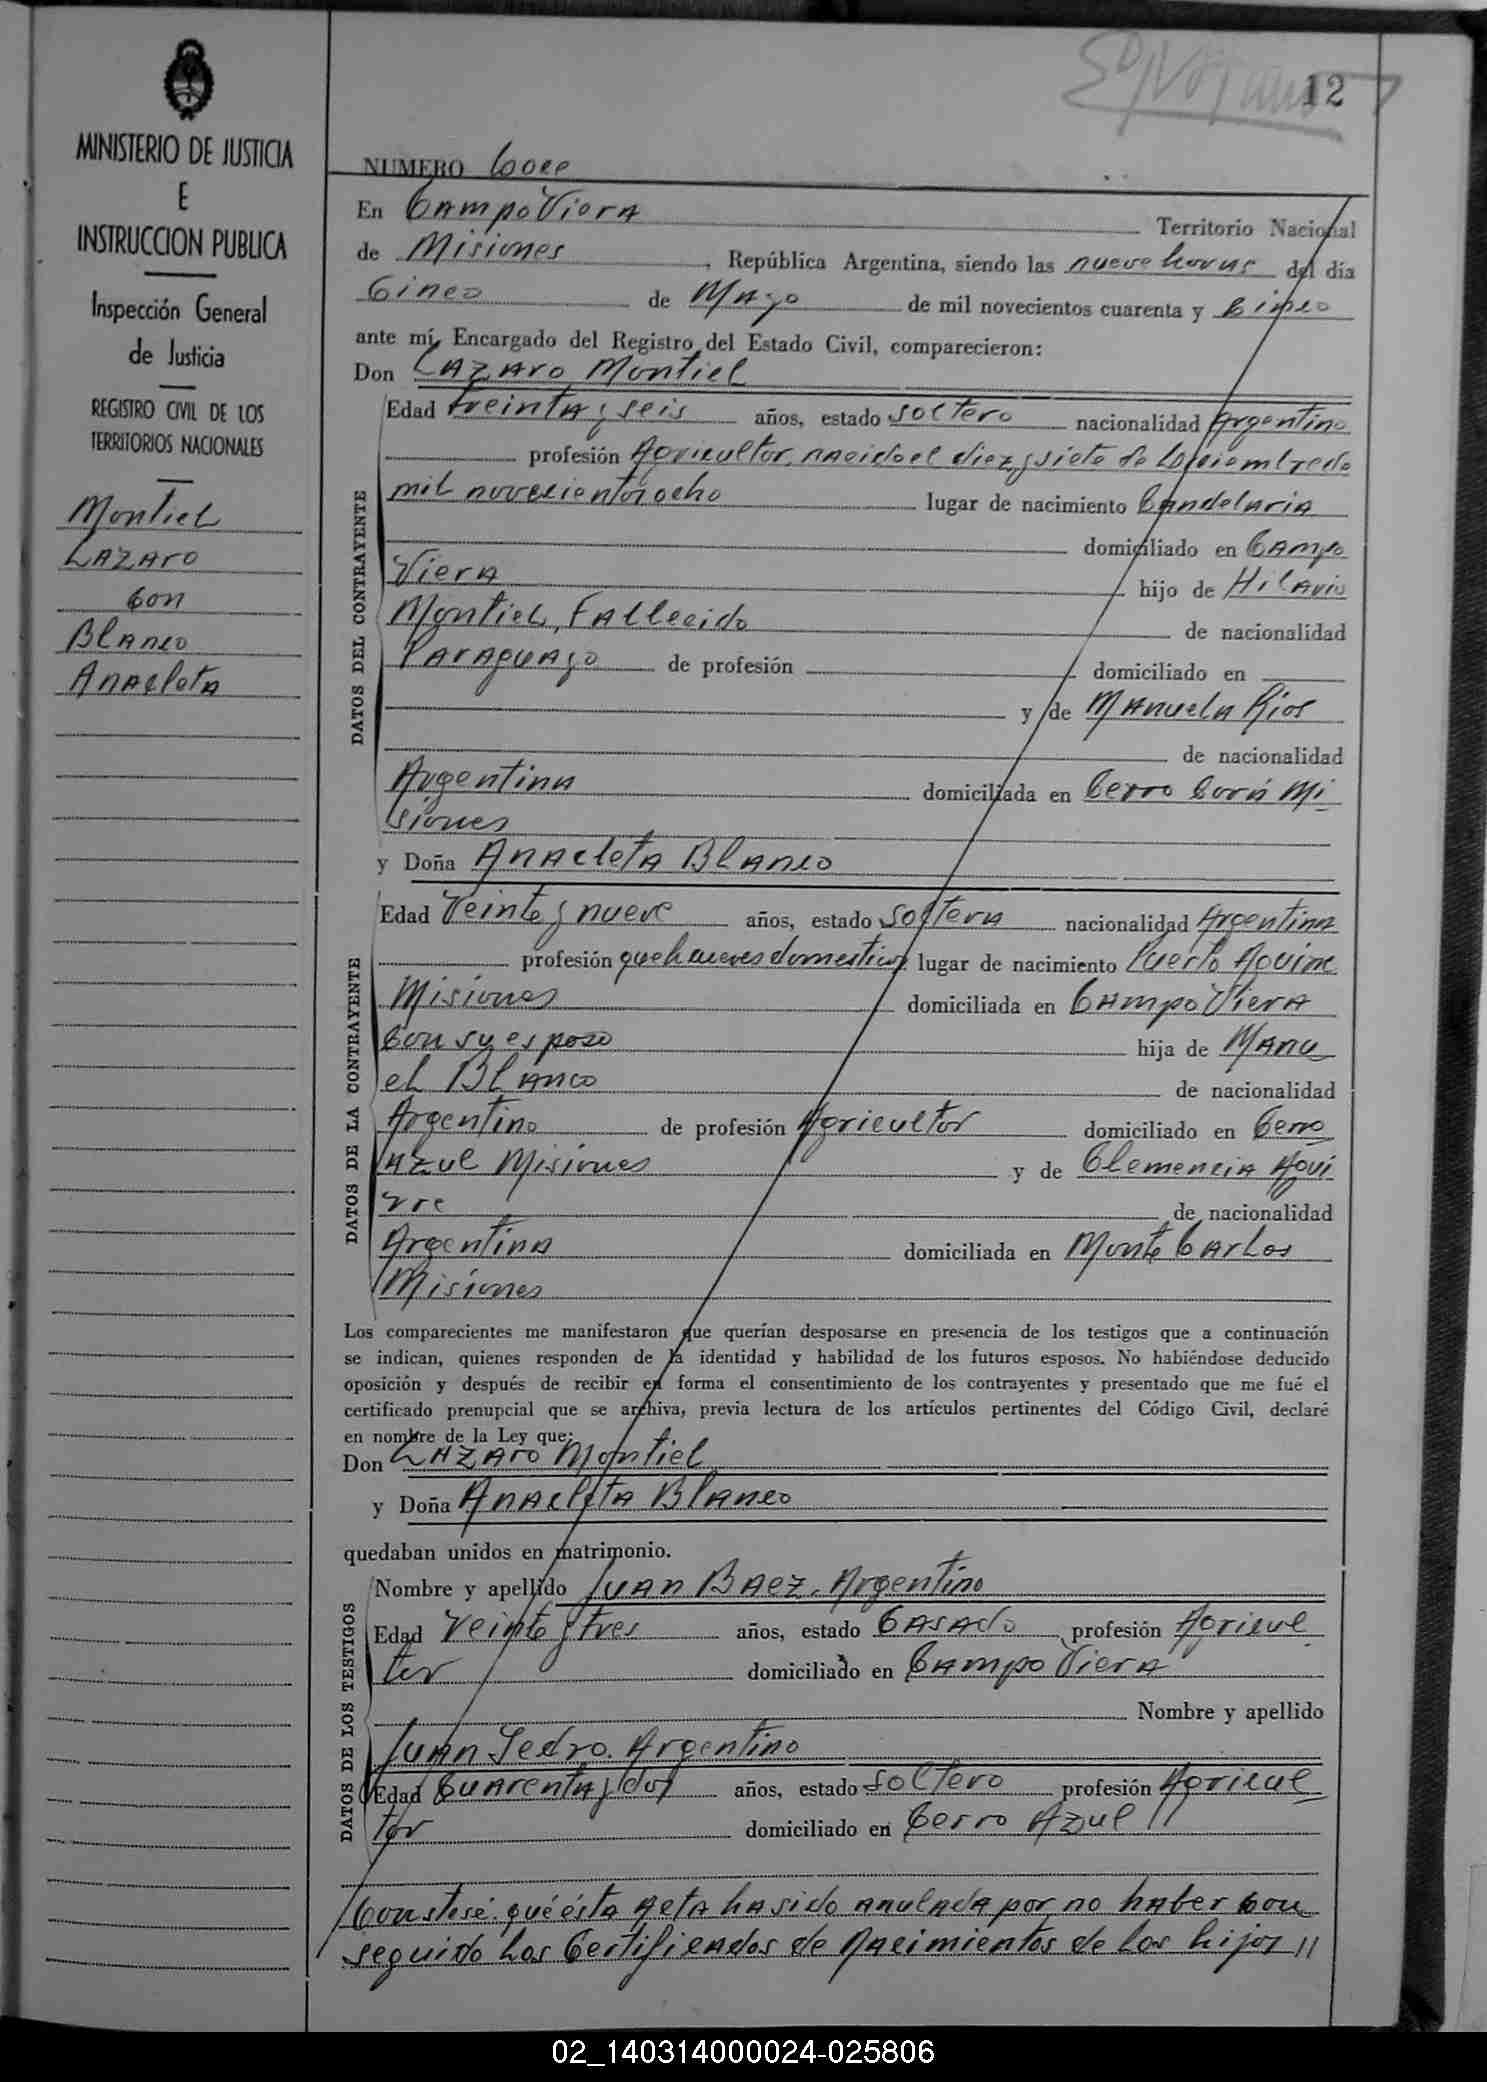 12
MINISTERIO DE JUSTICIA
E
INSTRUCCION PUBLICA
Inspección General
de Justicia
REGISTRO CIVIL DE LOS
TERRITORIOS NACIONALES
Montiel
Lazaro
Con
Blanco
Anacleta
NUMERO Doce
En Campo Viera Territorio Nacional
de Misiones, República Argentina, siendo las nueve horas del día
Cinco de Mayo de mil novecientos cuarenta y Cinco
ante mí, Encargado del Registro del Estado Civil, comparecieron:
Don Lazaro Montiel
DATOS DEL CONTRAYENTE
Edad treinta y seis años, estado soltero nacionalidad Argentino
profesión Agricultor, nacido el diez y siete de Diciembre de
mil novecientos ocho lugar de nacimiento Candelaria
domiciliado en Campo
Viera hijo de Hilario
Montiel, Fallecido de nacionalidad
Paraguayo de profesión domiciliado en
y de Manuela Rios
de nacionalidad
Argentina domiciliada en Cerro Corá Mi
siones
y Doña Anacleta Blanco
DATOS DE LA CONTRAYENTE
Edad Veinte y nueve años, estado Soltera nacionalidad Argentina
profesión quehaceres domesticos lugar de nacimiento Puerto Aguirre
Misiones domiciliada en Campo Viera
Con su esposo hija de Manu
el Blanco de nacionalidad
Argentino de profesión Agricultor domiciliado en Cerro
Azul Misiones y de Clemencia Agui
rre de nacionalidad
Argentina domiciliada en Monte Carlos
Misiones
Los comparecientes me manifestaron que querían desposarse en presencia de los testigos que a continuación
se indican, quienes responden de la identidad y habilidad de los futuros esposos. No habiéndose deducido
oposición y después de recibir en forma el consentimiento de los contrayentes y presentado que me fué el
certificado prenupcial que se archiva, previa lectura de los artículos pertinentes del Código Civil, declaré
en nombre de la Ley que:
Don Lazaro Montiel
y Doña Anacleta Blanco
quedaban unidos en matrimonio.
DATOS DE LOS TESTIGOS
Nombre y apellido Juan Baez, Argentino
Edad Veinte y tres años, estado Casado profesión Agricul
tor domiciliado en Campo Viera
Nombre y apellido
Juan Pedro. Argentino
Edad Cuarenta y dos años, estado soltero profesión Agricul
tor domiciliado en Cerro Azul //
Constese: qué ésta Acta ha sido anulada por no haber con
seguido los Certificados de Nacimientos de los hijos //
02_140314000024-025806